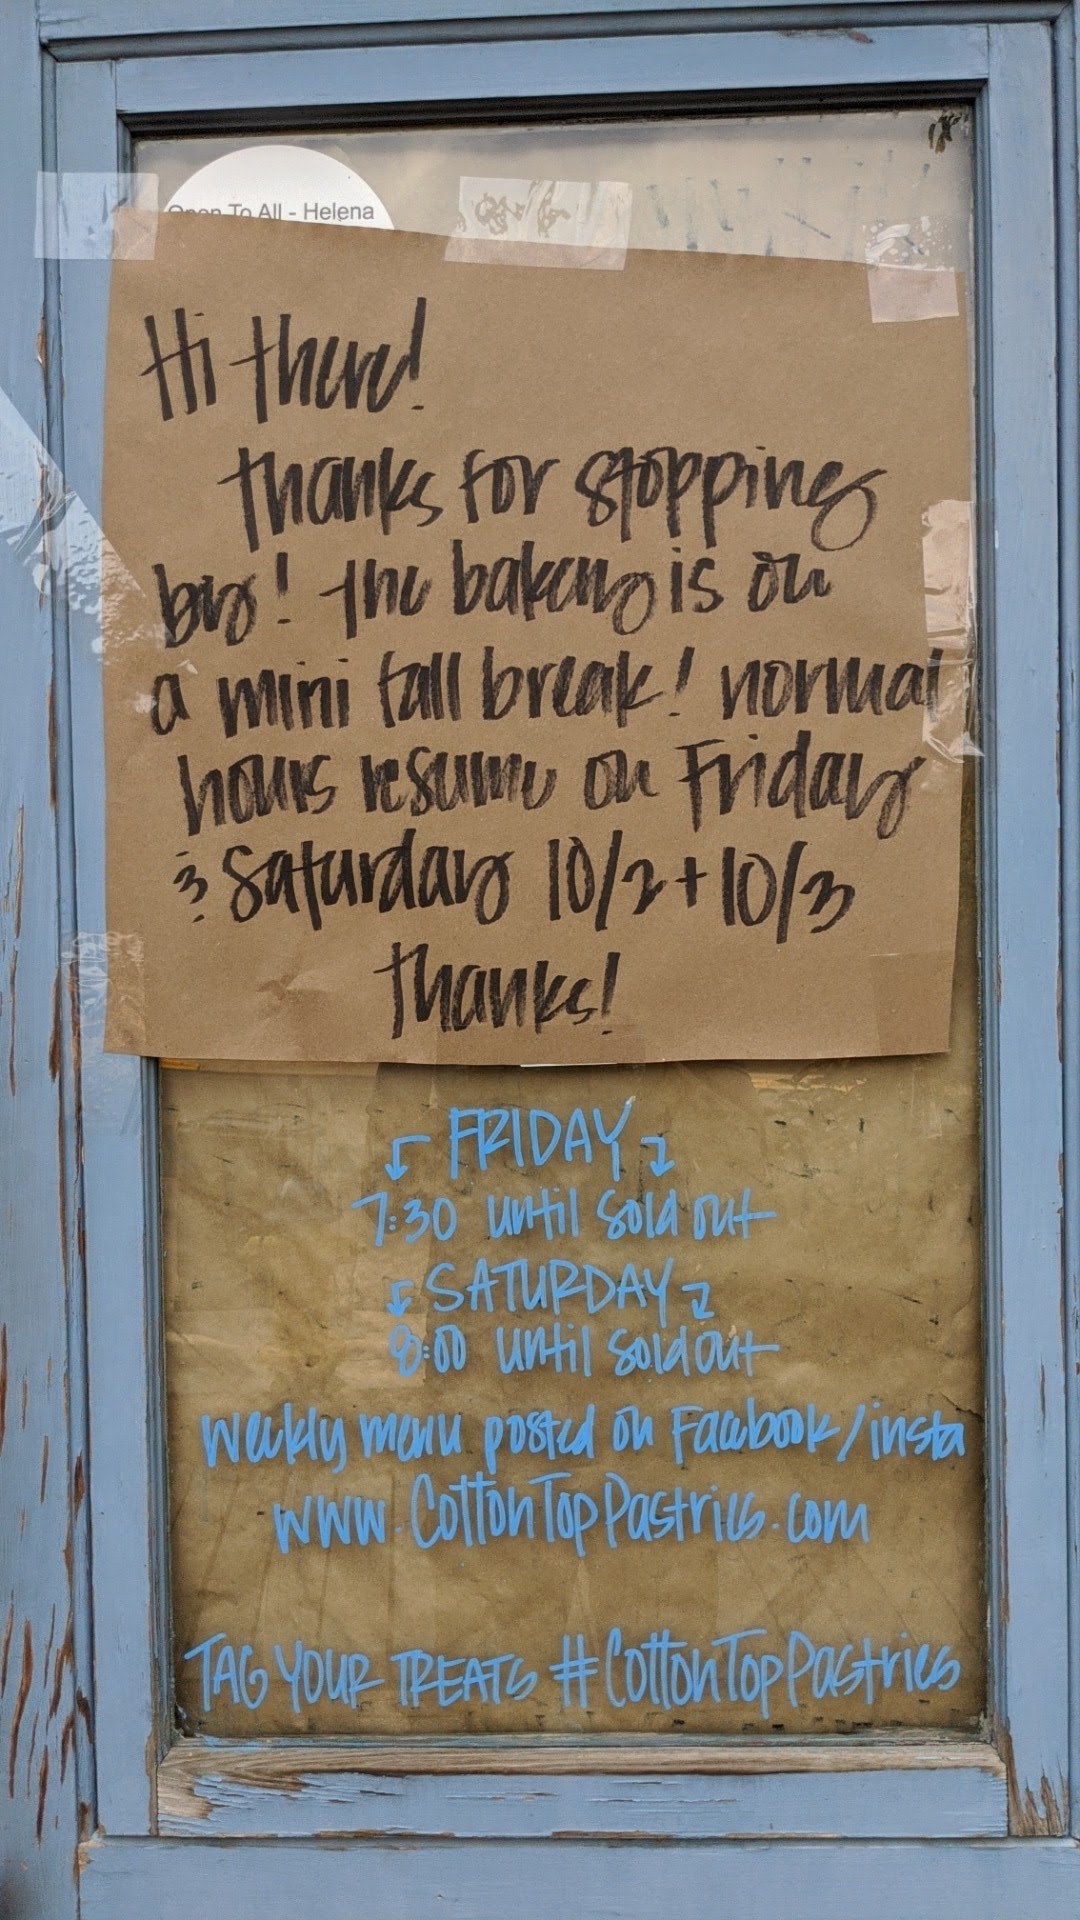 Open To All - Helena
Hi there!
thanks for stopping
by! the bakery is on
a mini fall break! normal
hours resume on Friday
& Saturday 10/2 + 10/3
thanks!
FRIDAY
7:30 until sold out
SATURDAY
8:00 until sold out
weekly menu posted on Facebook/insta
www.CottonTopPastries.com
TAG YOUR TREATS #CottonTopPastries